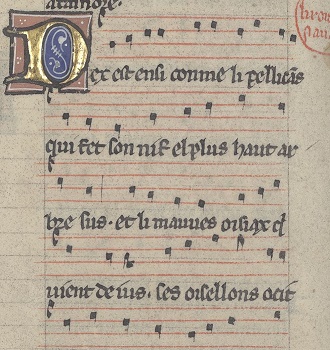 Dex est ensi conme li pellicans
qui fet son nif el plus haut ar
bre sus · et li mauves oisiax q̃
vient de ius · ses oisellons ocit